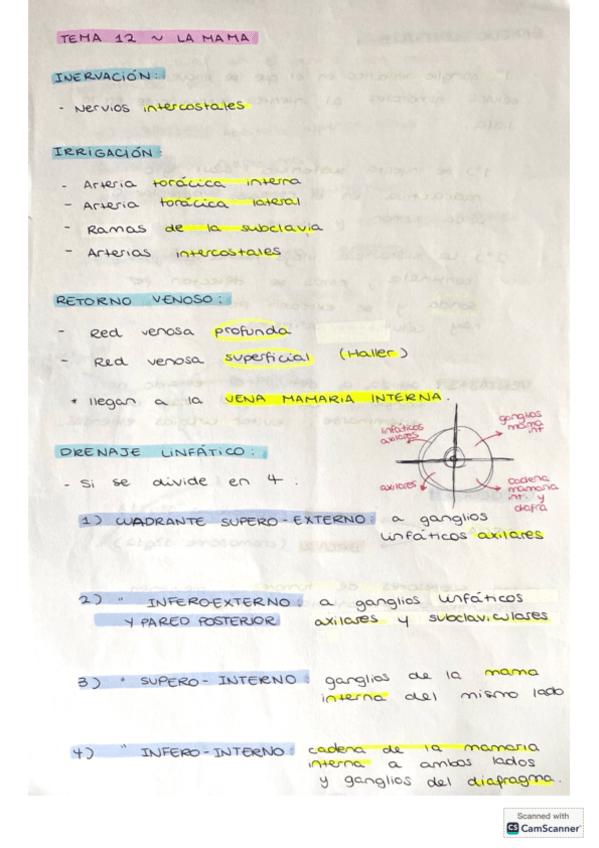 TEMA 12 ~ LA MAMA
INERVACIÓN:
- Nervios intercostales
IRRIGACIÓN:
- Arteria torácica interna
- Arteria torácica lateral
- Ramas de la subclavia
- Arterias intercostales
RETORNO VENOSO:
- Red venosa profunda
- Red venosa superficial (Haller)
* llegan a la VENA MAMARIA INTERNA.
linfáticos
axilares
ganglios
mama
int
axilares
cadena
mamaria
int. y
diafra
DRENAJE LINFÁTICO:
- Si se divide en 4:
1) CUADRANTE SUPERO-EXTERNO: a ganglios
linfáticos axilares
2) " INFERO-EXTERNO: a ganglios linfáticos
Y PARED POSTERIOR axilares y subclaviculares
3) " SUPERO-INTERNO: ganglios de la mama
interna del mismo lado
4) " INFERO-INTERNO: cadena de la mamaria
interna a ambos lados
y ganglios del diafragma.
Scanned with
CS CamScanner